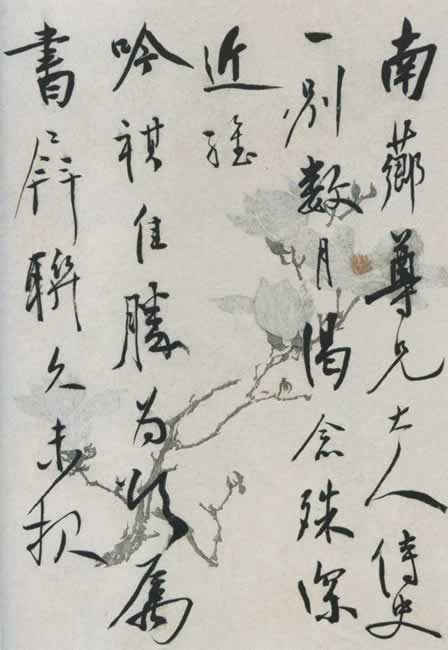 南薌尊兄大人侍史
一别数月渴念殊深
近維
吟祺佳勝為頌属
書屏聯久未報